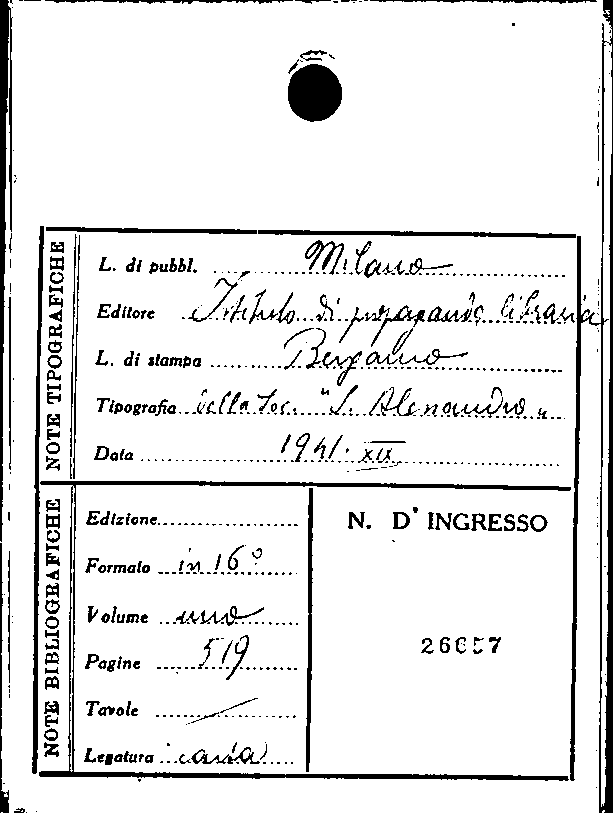 NOTE TIPOGRAFICHE
L. di pubbl. Milano
Editore Istituto di propaganda libraria
L. di stampa Bergamo
Tipografia della Soc. "S. Alessandro"
Data 1941. XIX
NOTE BIBLIOGRAFICHE
Edizione
Formato in 16°
Volume uno
Pagine 519
Tavole /
Legatura carta
N. D'INGRESSO
26657